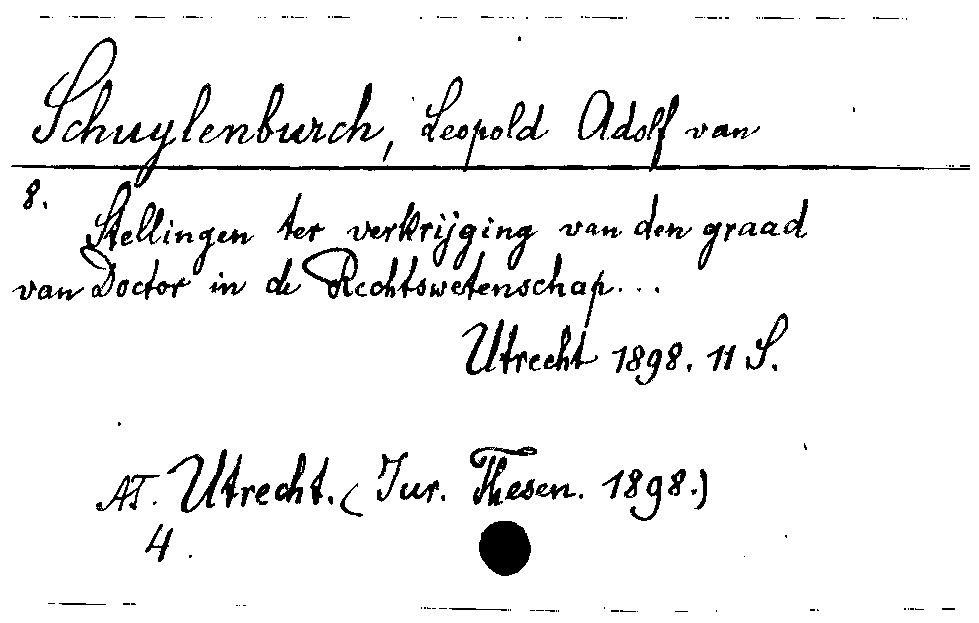 Schuylenburch, Leopold Adolf van
8.
Stellingen ter verkrijging van den graad
van Doctor in de Rechtswetenschap...
Utrecht 1898. 11 S.
AT. Utrecht. (Jur. Thesen. 1898.)
4.